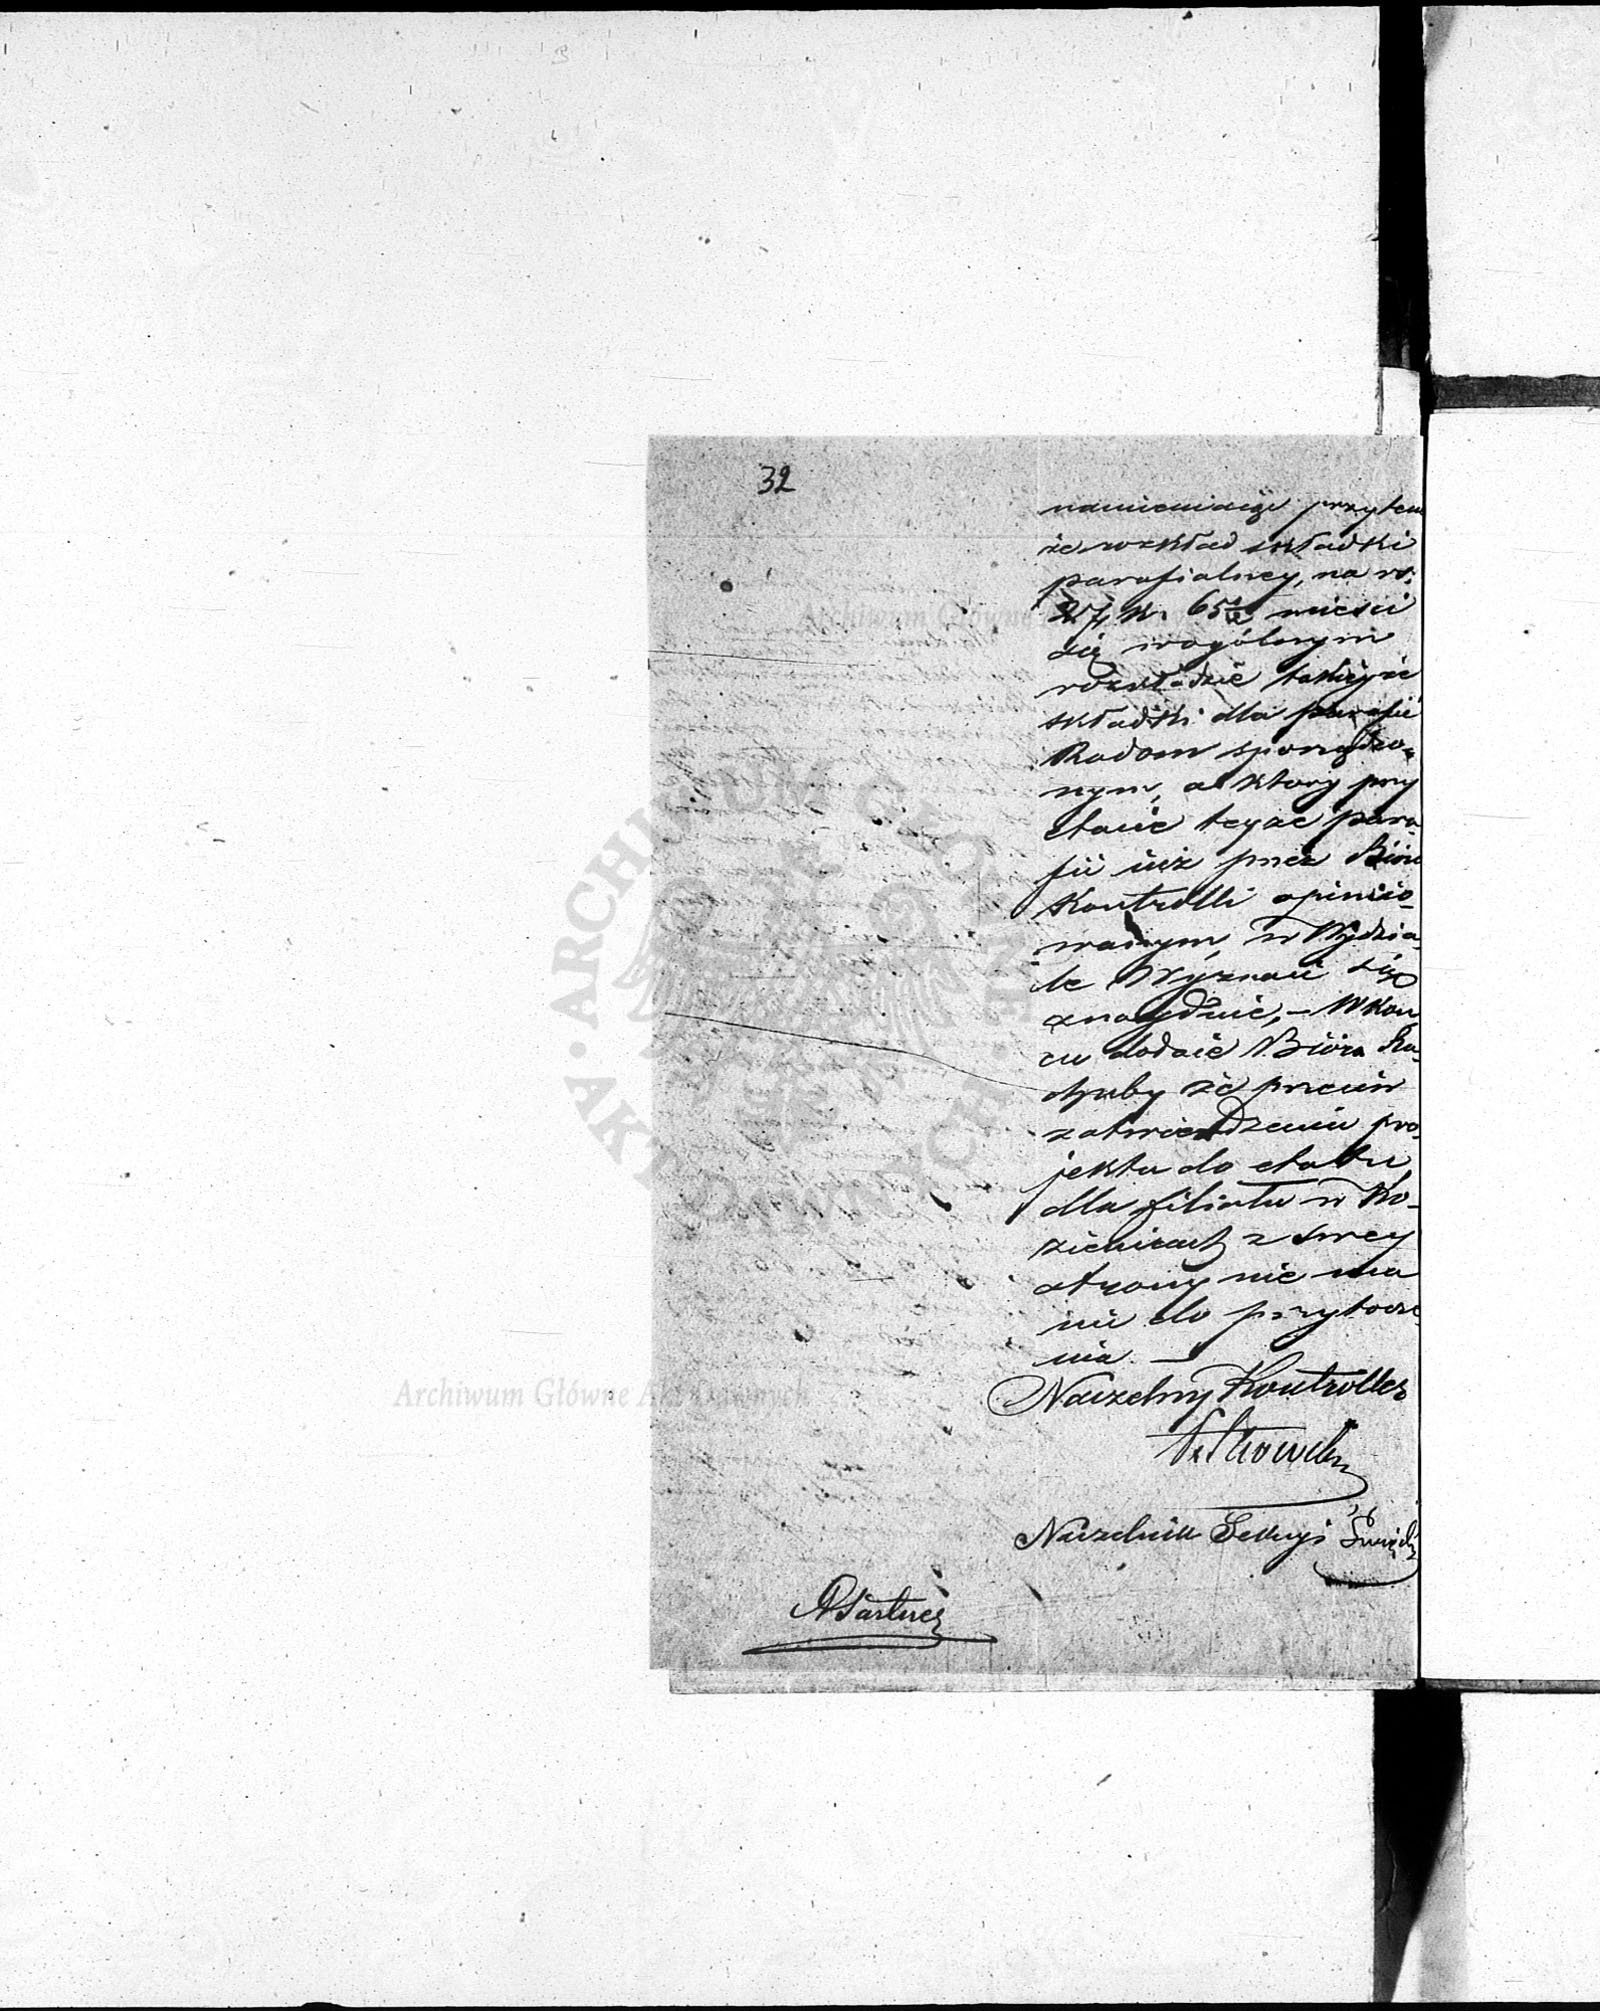 32
namieniaiąc przytem
że rozkład składki
parafialney, na rs:
27, k. 65½ mieści
się wogólnym
rozkładzie takieyże
składki dla parafii
Radom sporządzo=
nym, a który przy
etacie teyże para-
fii iuż przez Bióro
Kontrolli opinio-
wanym, w Wydzia-
le Wyznań się
znayduie, – W koń
cu dodaie N. Bióra Ra-
chuby że przeciw
zatwierdzeniu pro-
jektu do etatu,
dla filiału w Ko-
zienicach z swey
strony nie ma
nic do przytocze
nia. —
Naczelny Kontroller
Naczelnik Sekcyi
Archiwum Główne Akt Dawnych
ARCHIWUM GŁÓWNE AKT DAWNYCH